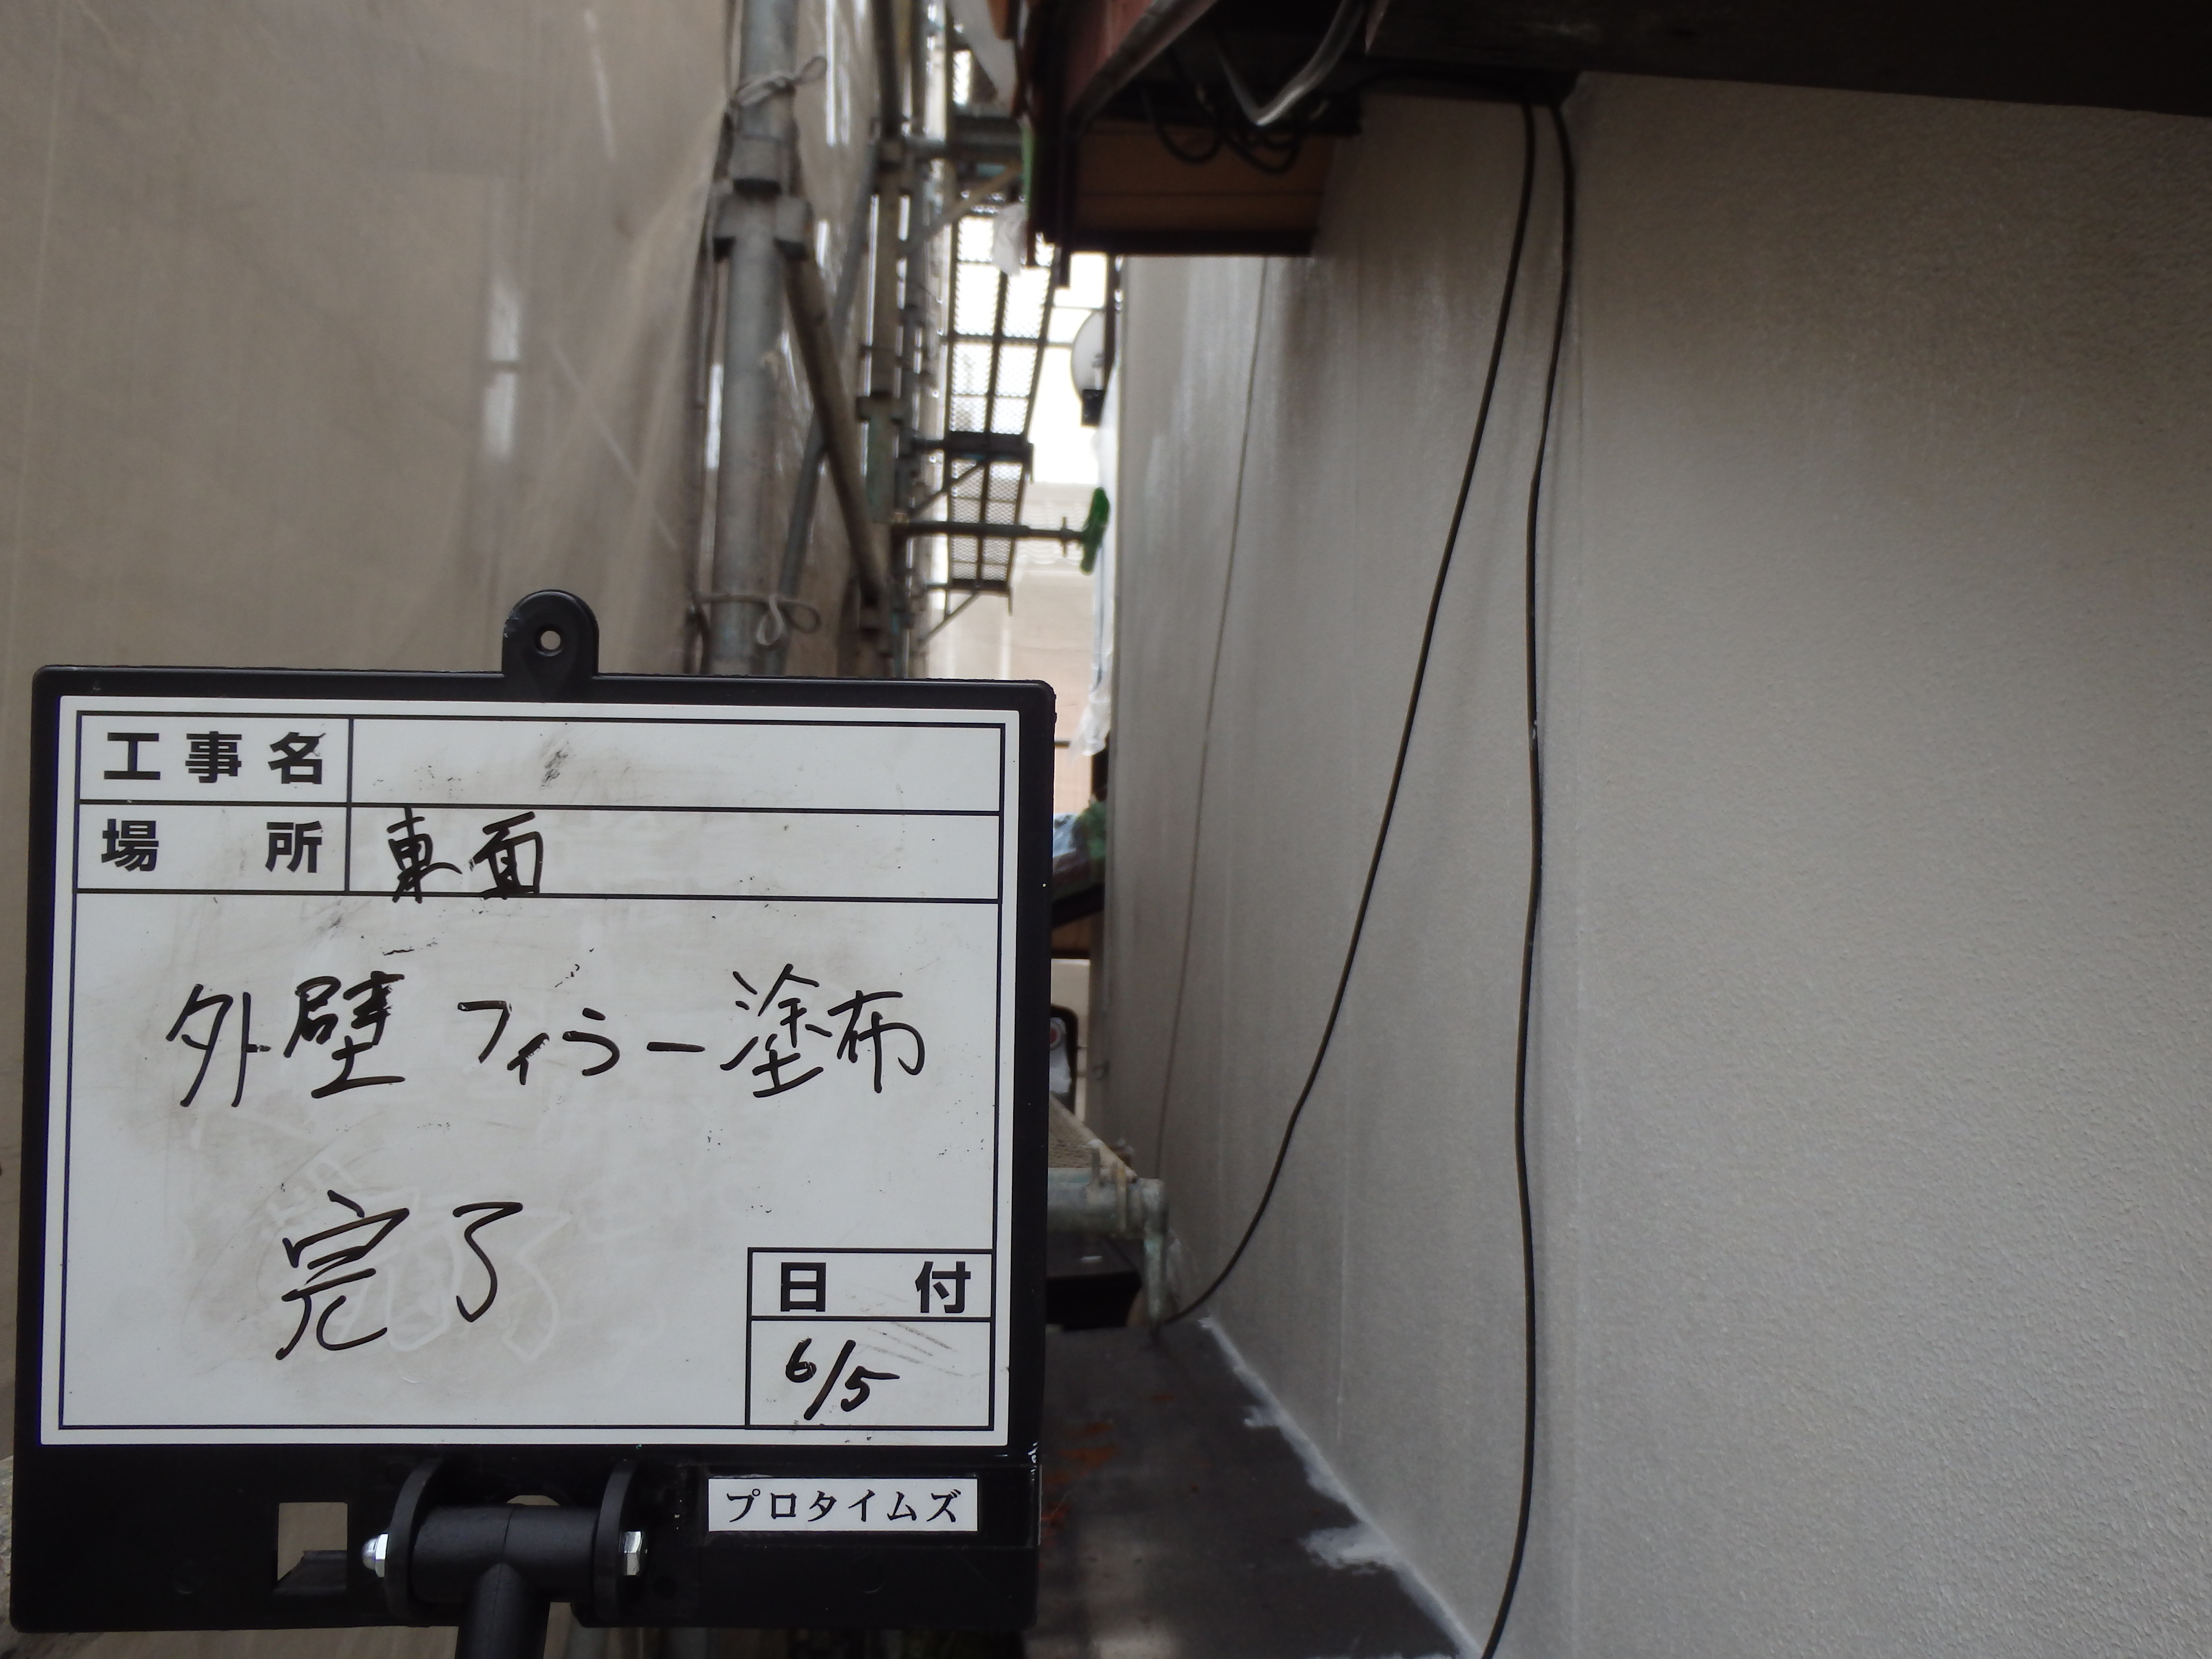 工事名
場所 東面
外壁 フィラー塗布
完了
日付
6/5
プロタイムズ